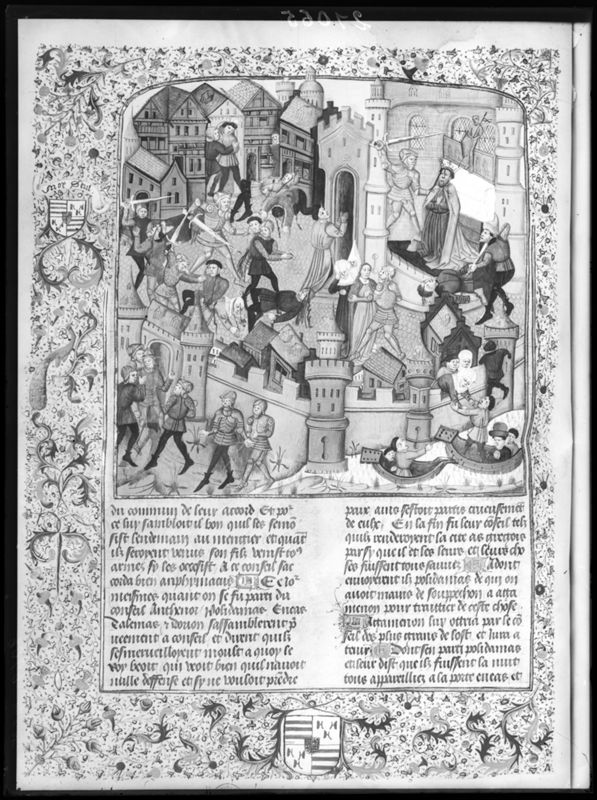 21065
du commun de leur acord Et po^r
ce luy sambloit il bon quil les semo
sist lendemain au mengier et quāt
ilz seroyent venus son filz venist to^9
armez sy les occesist A ce conseil sac
corda bien amphymacus
meismes quant on se fu parti du
conseil Anthenor Polidamas Eneas
Dalemas & dorion sassamblerent p
ueement a conseil et dirent quilz
sesmerueilloyent moult a quoy le
roy beoit qui veoit bien quil nauoit
nulle deffense et sy ne vouloit prēdre
paix ains sestoit partis crueusemēt
de eulx En la fin fu leur cōseil telz
quilz renderoyent la cite as gregois
par sy que il et les leurs et leurs cho
ses fuissent tous sauuez Adont
enuoyerent ilz polidamas de qui on
auoit mains de souppechon a aga
menon pour traittier de ceste chose
Agamenon luy ottria par le cō
seil des plus grans de lost et lura a
tenir Dont sen parti polidamas
et leur dist que ilz fuissent la nuit
tous appareilliez a la porte eneas et